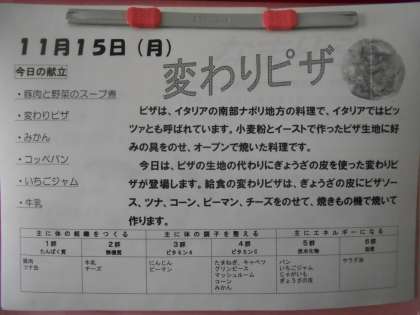 11月15日（月）
変わりピザ
今日の献立
・豚肉と野菜のスープ煮
・変わりピザ
・みかん
・コッペパン
・いちごジャム
・牛乳
ピザは、イタリアの南部ナポリ地方の料理で、イタリアではピッ
ツァとも呼ばれています。小麦粉とイーストで作ったピザ生地に好
みの具をのせ、オーブンで焼いた料理です。
今日は、ピザの生地の代わりにぎょうざの皮を使った変わりピ
ザが登場します。給食の変わりピザは、ぎょうざの皮にピザソー
ス、ツナ、コーン、ピーマン、チーズをのせて、焼きもの機で焼いて
作ります。
主に体の組織をつくる 主に体の調子を整える 主にエネルギーになる
1群 2群 3群 4群 5群 6群
たんぱく質 無機質 ビタミンA ビタミンC 炭水化物 脂質
豚肉 牛乳 にんじん たまねぎ、キャベツ パン サラダ油
ツナ缶 チーズ ピーマン グリンピース いちごジャム
マッシュルーム じゃがいも
コーン ぎょうざの皮
みかん